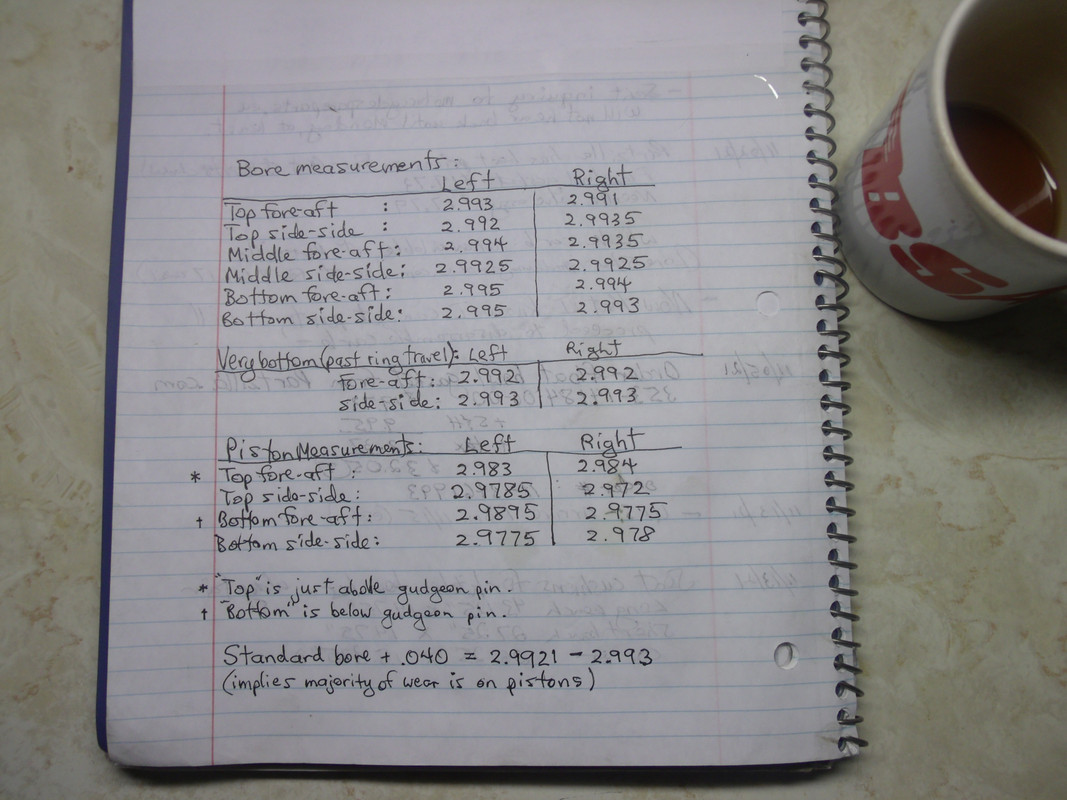 Bore measurements:
Left Right
Top fore-aft : 2.993 2.991
Top side-side : 2.992 2.9935
Middle fore-aft: 2.994 2.9935
Middle side-side: 2.9925 2.9925
Bottom fore-aft: 2.995 2.994
Bottom side-side: 2.995 2.993
Very bottom (past ring travel): Left Right
fore-aft: 2.992 2.992
side-side: 2.993 2.993
Piston Measurements: Left Right
* Top fore-aft : 2.983 2.984
Top side-side: 2.9785 2.972
† Bottom fore-aft: 2.9895 2.9775
Bottom side-side: 2.9775 2.978
* "Top" is just above gudgeon pin.
† "Bottom" is below gudgeon pin.
Standard bore + .040 = 2.9921 - 2.993
(implies majority of wear is on pistons)